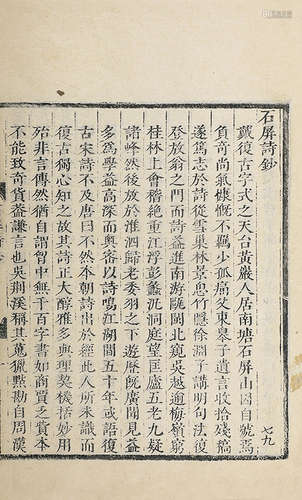 石屏詩鈔
戴復古字式之天台黃巖人居南塘石屏山因自號焉
負奇尚氣慷慨不羈少孤痛父東皋子遺言收拾殘稿
遂篤志於詩從雪巢林景思竹隱徐淵子講明句法復
登放翁之門而詩益進南游甌閩北窺吳越逾梅嶺窮
桂林上會稽絶重江浮彭蠡泛洞庭望匡廬五老九疑
諸峰然後放於淮泗歸老委羽之下遊歷旣廣聞見益
多爲學益高深而奧密以詩鳴江湖間五十年或語復
古宋詩不及唐曰不然本朝詩出於經此人所未識而
復古獨心知之故其詩正大醇雅多與理契機括妙用
殆非言傳然猶自謂胷中無千百字書如商賈之乏貲本
不能致奇貨蓋謙言也吳荆溪稱其蒐獵點勘自周漢
七九